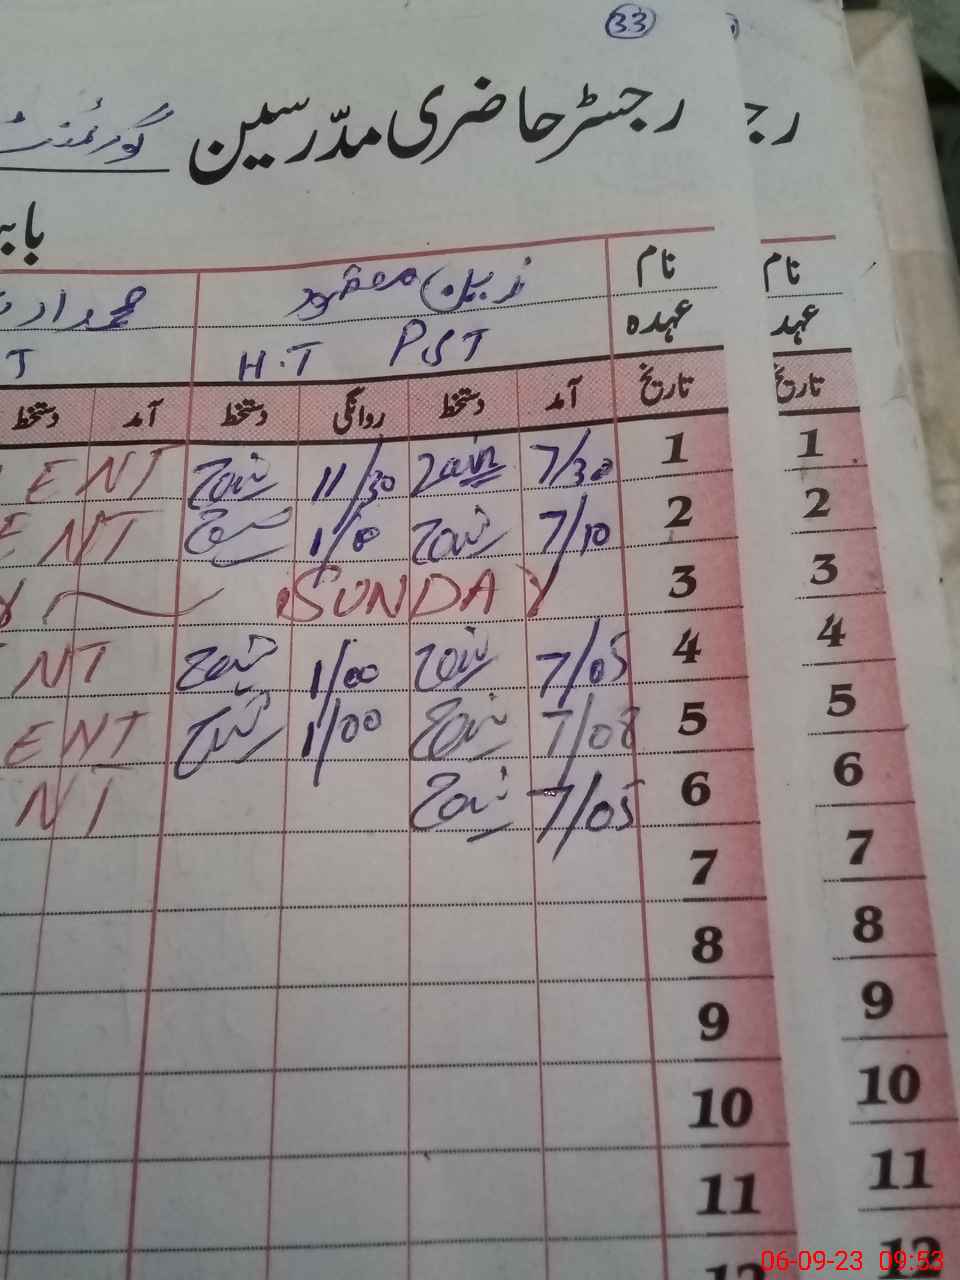 33
رجسٹر حاضری مدّرسین گورنمنٹ
رج
نام
نام
عہدہ H.T PST
عہد
تاریخ آمد دستخط روانگی دستخط آمد دستخط
تاریخ
1 7/30 Zain 11/30 Zain ENT
1
2 7/10 Zain ENT
2
3 SUNDAY
3
4 7/05 Zain 1/00 Zain NT
4
5 7/08 Zain 1/00 ENT
5
6 7/05 Zain NT
6
7
7
8
8
9
9
10
10
11
11
12
12
06-09-23 09:53